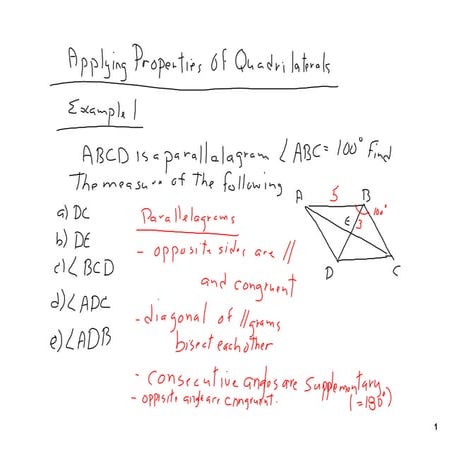 Applying Properties Of Quadrilaterals
Example 1
ABCD is a parallelagram ∠ABC = 100° Find
The measure of the following
a) DC
b) DE
c) ∠BCD
d) ∠ADC
e) ∠ADB
Parallelagrams
- opposite sides are //
and congruent
- diagonal of //grams
bisect each other
- consecutive angles are supplementary
(=180°)
- opposite angle are congruent.
A 5 B
100°
E 3
D C
1